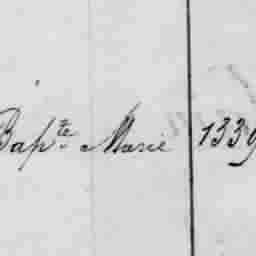 Bapte Marie 1339